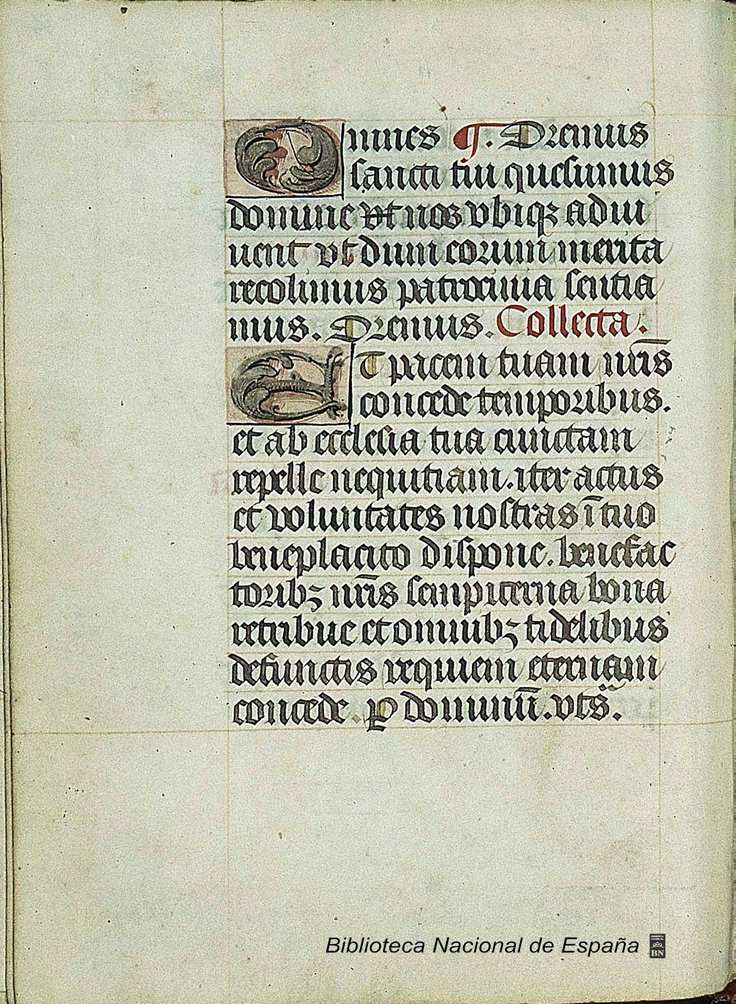 Omnes ¶. Oremus
sancti tui quesumus
domine vt nos vbiqꝫ adiu
uent vt dum eorum merita
recolimus patrocinia sentia
mus. Oremus. Collecta.
Et pacem tuam nr̄is
concede temporibus.
et ab ecclesia tua cunctam
repelle nequitiam. iter actus
et voluntates nostras ī tuo
beneplacito dispone. benefac
toribꝫ nr̄is sempiterna bona
retribue et omnibꝫ fidelibus
defunctis requiem eternam
concede. ꝑ dominū. vt sᵃ.
Biblioteca Nacional de España
BN